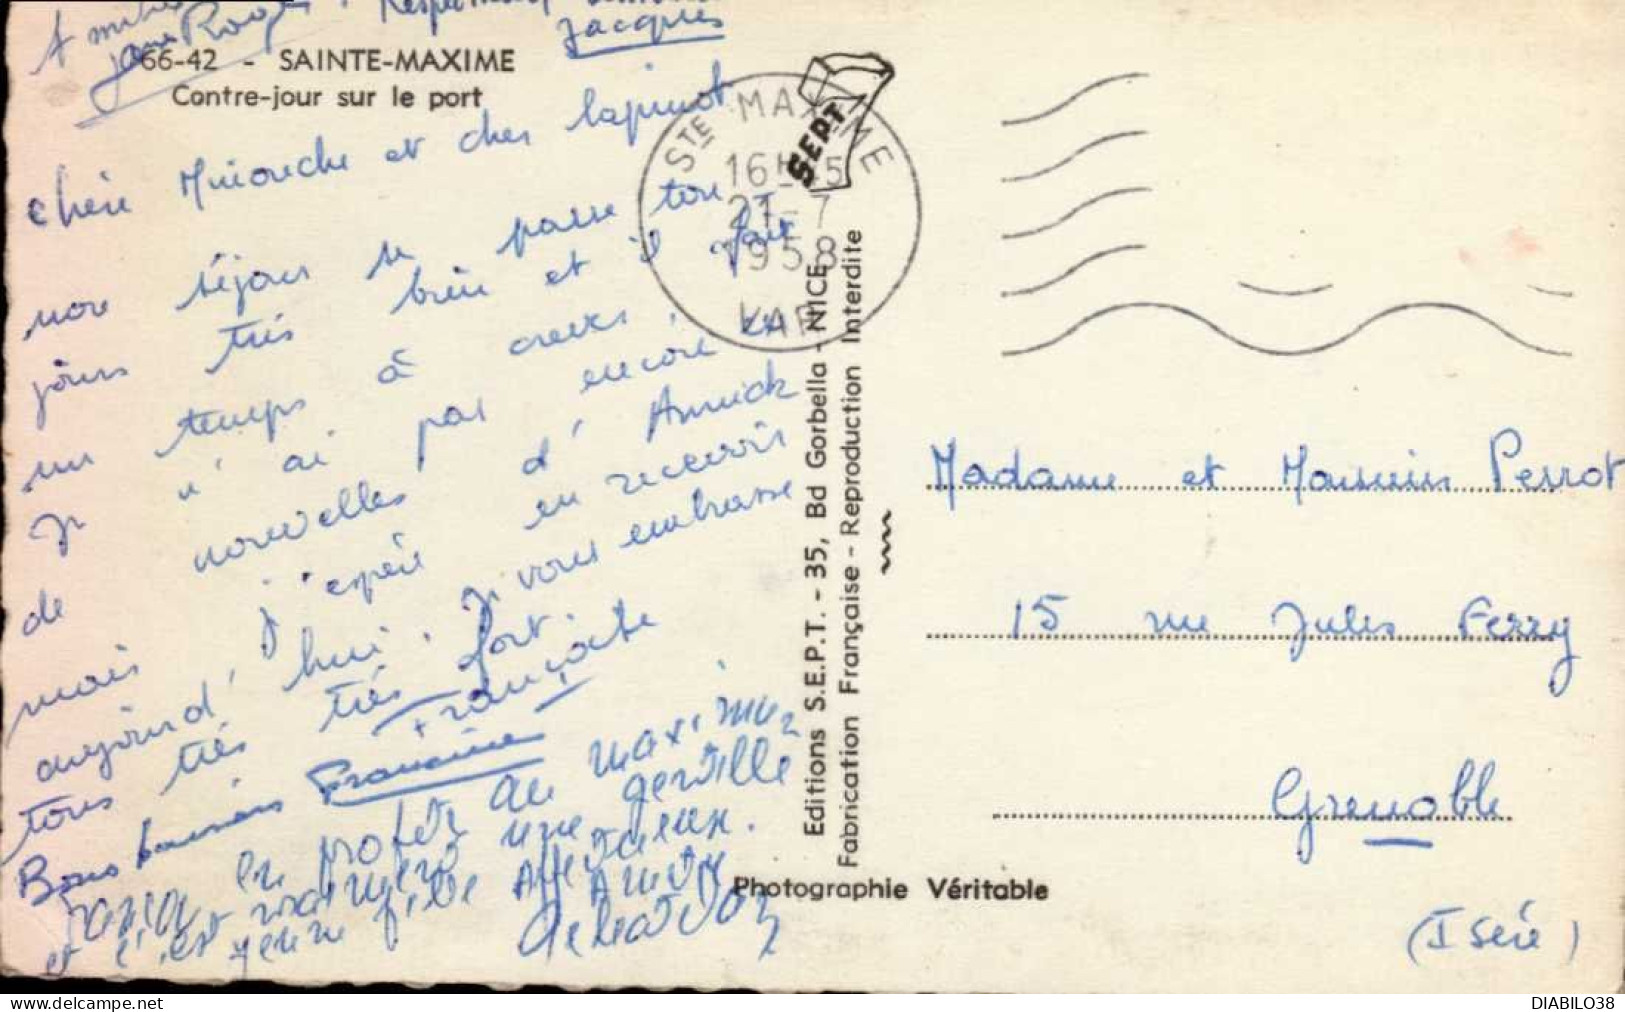 Amitiés Respectueux
Jacques
066-42 - SAINTE-MAXIME
Contre-jour sur le port
STE MAXIME
16H45
21-7
1958
VAR
SEPT
Chère Minouche et cher lapinot
mon séjour se passe tou
jours très bien et il fait
un temps à crever.
Je n'ai pas encore eu
de nouvelles d'Annick
mais j'espère en recevoir
aujourd'hui. Je vous embrasse
tous très très fort.
Françoise
Bons baisers Francine
en profite au maximun
et c'est vraiment une gentille
jeune fille Affectueux.
Amitiés
Editions S.E.P.T. - 35, Bd Gorbella - NICE
Fabrication Française - Reproduction Interdite
Photographie Véritable
Madame et Monsieur Perrot
15 rue Jules Ferry
Grenoble
(Isère)
DIABILO38